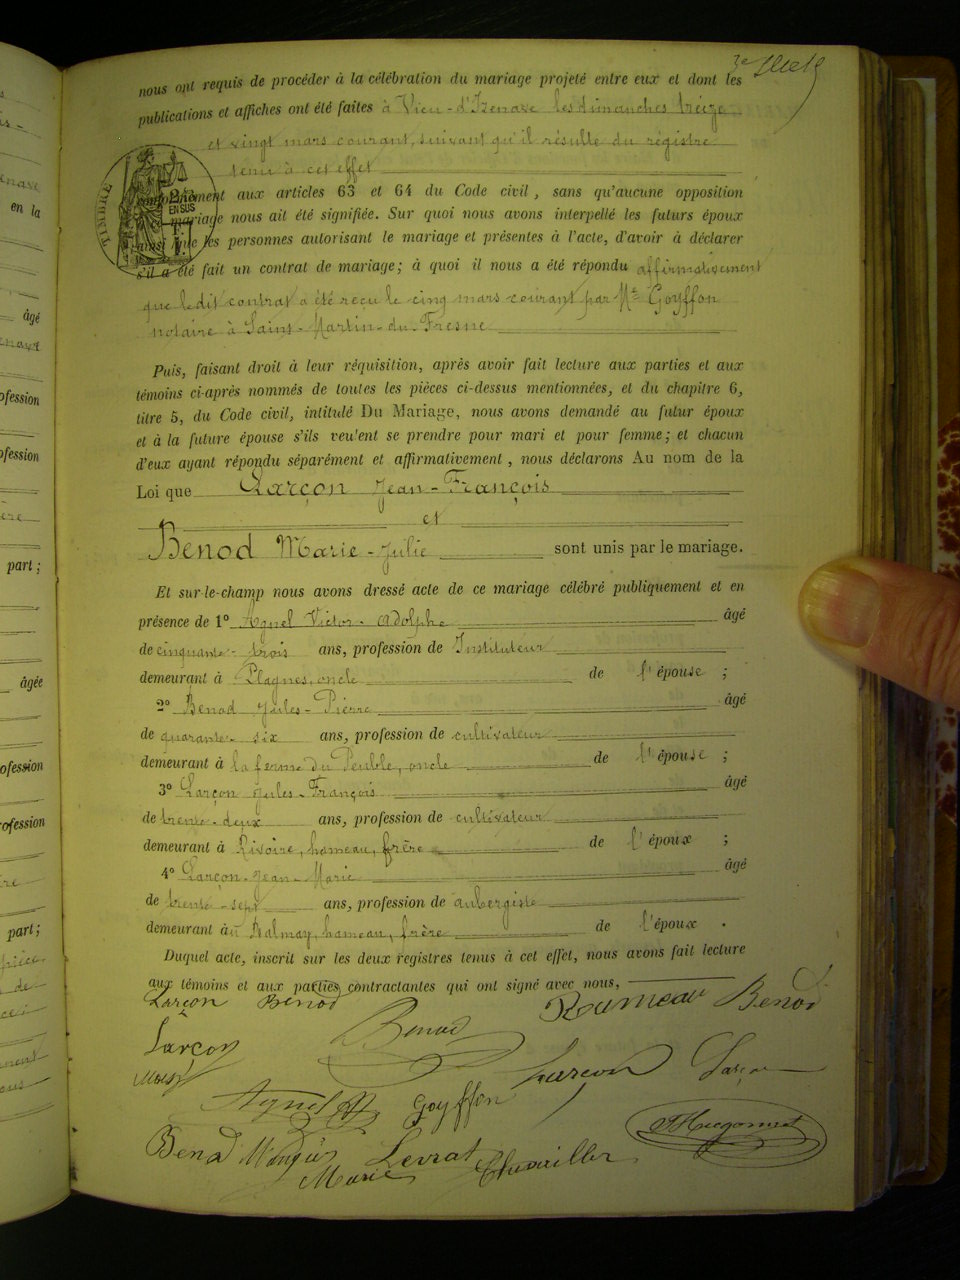 nous ont requis de procéder à la célébration du mariage projeté entre eux et dont les
publications et affiches ont été faites à Vieu-d'Izenave les dimanches treize
et vingt mars courant, suivant qu'il résulte du régistre
tenu à cet effet
TIMBRE
2/10
EN SUS
conformément aux articles 63 et 64 du Code civil, sans qu'aucune opposition
ce mariage nous ait été signifiée. Sur quoi nous avons interpellé les futurs époux
ainsi que les personnes autorisant le mariage et présentes à l'acte, d'avoir à déclarer
s'il a été fait un contrat de mariage; à quoi il nous a été répondu affirmativement
que ledit contrat a été reçu le cinq mars courant par Me Goyffon
notaire à Saint-Martin-du-Fresne
Puis, faisant droit à leur réquisition, après avoir fait lecture aux parties et aux
témoins ci-après nommés de toutes les pièces ci-dessus mentionnées, et du chapitre 6,
titre 5, du Code civil, intitulé Du Mariage, nous avons demandé au futur époux
et à la future épouse s'ils veulent se prendre pour mari et pour femme; et chacun
d'eux ayant répondu séparément et affirmativement, nous déclarons Au nom de la
Loi que Larçon Jean-François
et
Benod Marie-Julie sont unis par le mariage.
Et sur-le-champ nous avons dressé acte de ce mariage célébré publiquement et en
présence de 1° Agnel Victor-Adolphe âgé
de cinquante-trois ans, profession de Instituteur
demeurant à Plagnes, oncle de l'épouse ;
2° Benod Jules-Pierre âgé
de quarante-six ans, profession de cultivateur
demeurant à la ferme du Peuble, oncle de l'épouse ;
3° Larçon Jules-François âgé
de trente-deux ans, profession de cultivateur
demeurant à Rivoire, hameau, frère de l'époux ;
4° Larçon Jean-Marie âgé
de trente-sept ans, profession de aubergiste
demeurant au Balmay, hameau, frère de l'époux .
Duquel acte, inscrit sur les deux registres tenus à cet effet, nous avons fait lecture
aux témoins et aux parties contractantes qui ont signé avec nous,
Larçon Benod Rameau Benod
Larçon Benod
Larçon Larçon
Agnel Goyffon
Benod Levrat Chevailler
Marie
âgé
en la
profession
profession
part ;
âgée
profession
profession
part;